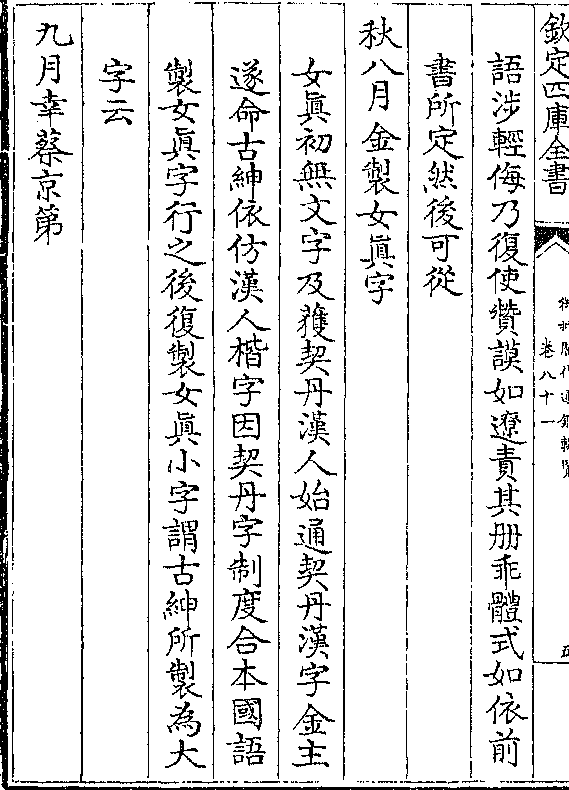 欽定四庫全書
御批歷代通鑑輯覽
卷八十一
語涉輕侮乃復使贊謨如遼責其册乖體式如依前
書所定然後可從
秋八月金製女眞字
女眞初無文字及獲契丹漢人始通契丹漢字金主
遂命古紳依仿漢人楷字因契丹字制度合本國語
製女眞字行之後復製女眞小字謂古紳所製為大
字云
九月幸蔡京第